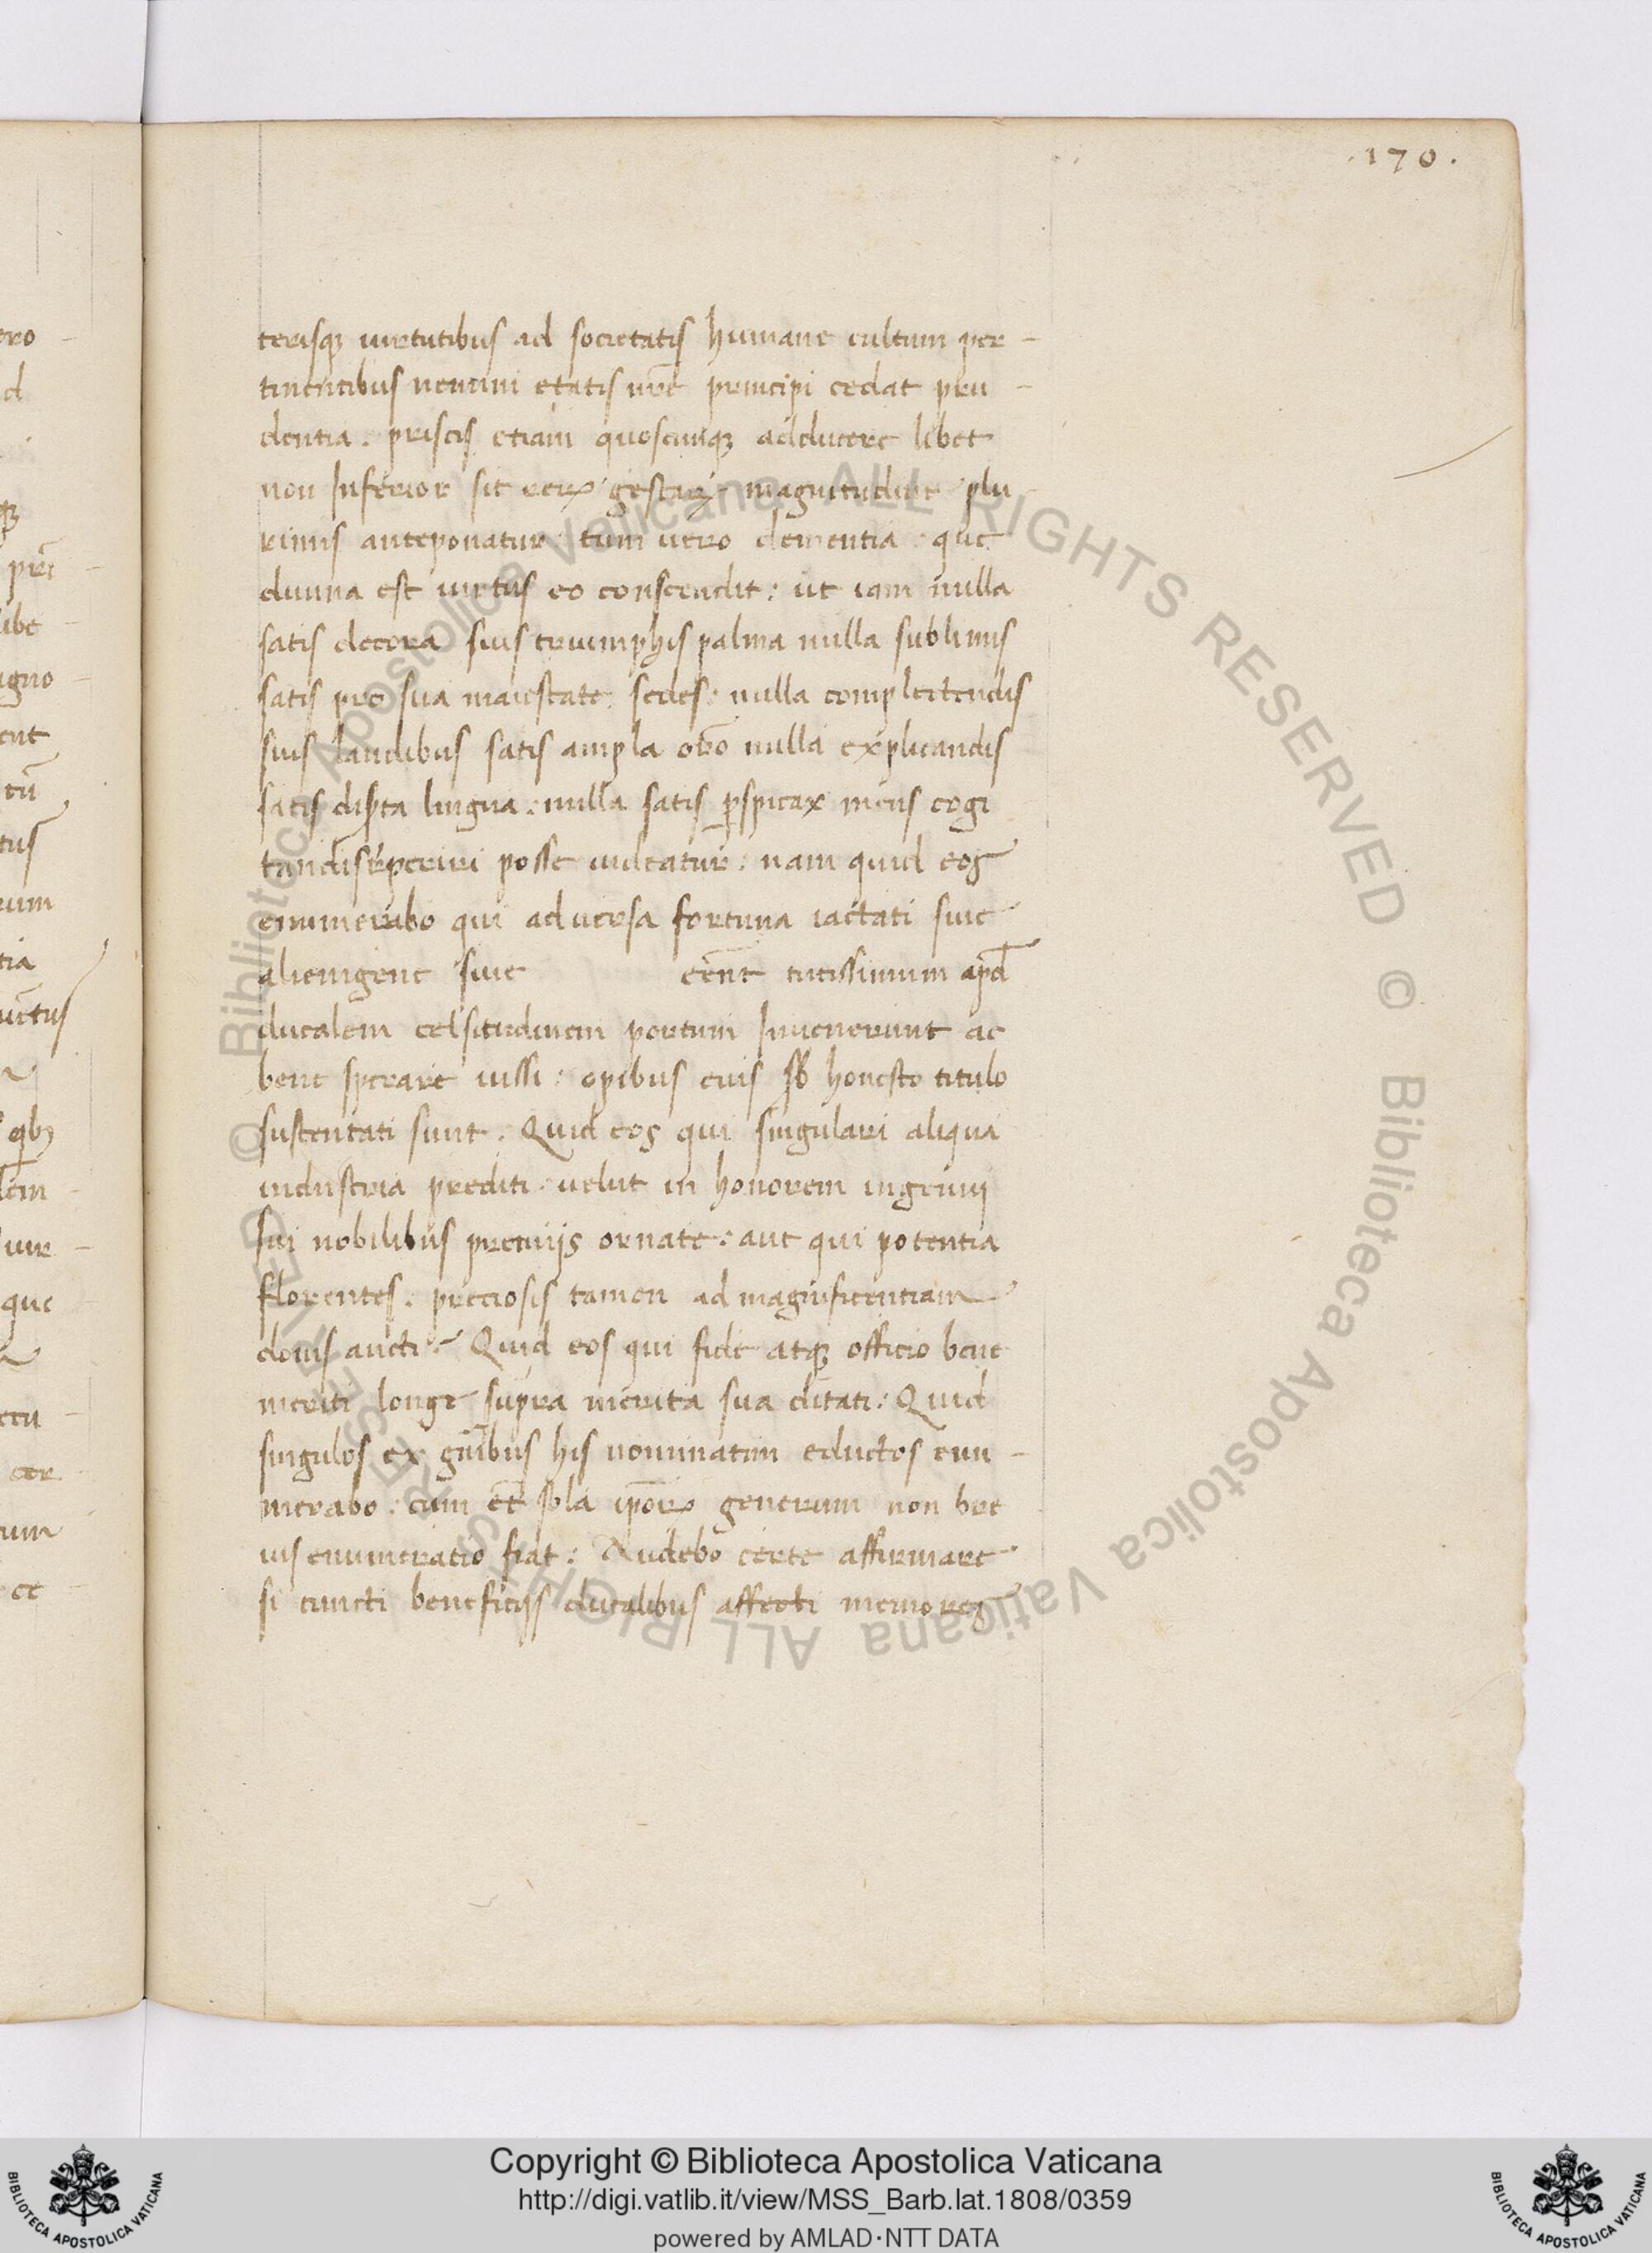 .170.
terisq virtutibus ad societatis humane cultum per-
tinentibus nemini etatis nr̄e principi cedat pru-
dentia. priscis etiam quoscunq adducere libet
non Inferior sit reꝝ gestaꝝ magnitudine plu
rimis anteponatur: tum uero clementia que
diuina est uirtus eo conscendit: ut iam nulla
satis decora suis triumphis palma nulla sublimis
satis pro sua maiestate sedes: nulla complectendis
suis laudibus satis ampla orō nulla explicandis
satis diserta lingua. nulla satis ꝑspicax mens cogi
tandis reperiri posse uideatur. nam quid eos
enumerabo qui aduersa fortuna iactati siue
alienigene siue cēnt tutissimum apd̄
ducalem celsitudinem portum Inuenerunt ac
bene sperare iussi: opibus eius sb honesto titulo
sustentati sunt. Quid eos qui singulari aliqua
industria prediti. uelut in honorem ingenij
sui nobilibus premijs ornate: aut qui potentia
florentes. preciosis tamen ad magnificentiam
donis aucti: Quid eos qui fide atq officio bene
meriti longe supra merita sua ditati: Quid
singulos ex gn̄ibus his nominatim eductos enu-
merabo. cum et̄ sola ip̄oꝝ generum non bre
uis enumeratio fiat: Audebo certe affirmare
si cuncti beneficijs ducalibus affecti memores
© Biblioteca Apostolica Vaticana ALL RIGHTS RESERVED © Biblioteca Apostolica Vaticana ALL RIGHTS RESERVED
Copyright © Biblioteca Apostolica Vaticana
http://digi.vatlib.it/view/MSS_Barb.lat.1808/0359
powered by AMLAD·NTT DATA
BIBLIOTECA APOSTOLICA VATICANA
BIBLIOTECA APOSTOLICA VATICANA